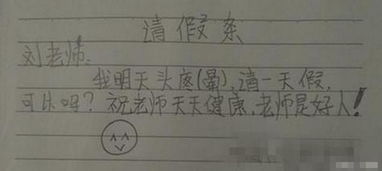 请假条
刘老师:
我明天头疼(晕),请一天假,
可以吗?祝老师天天健康,老师是好人!